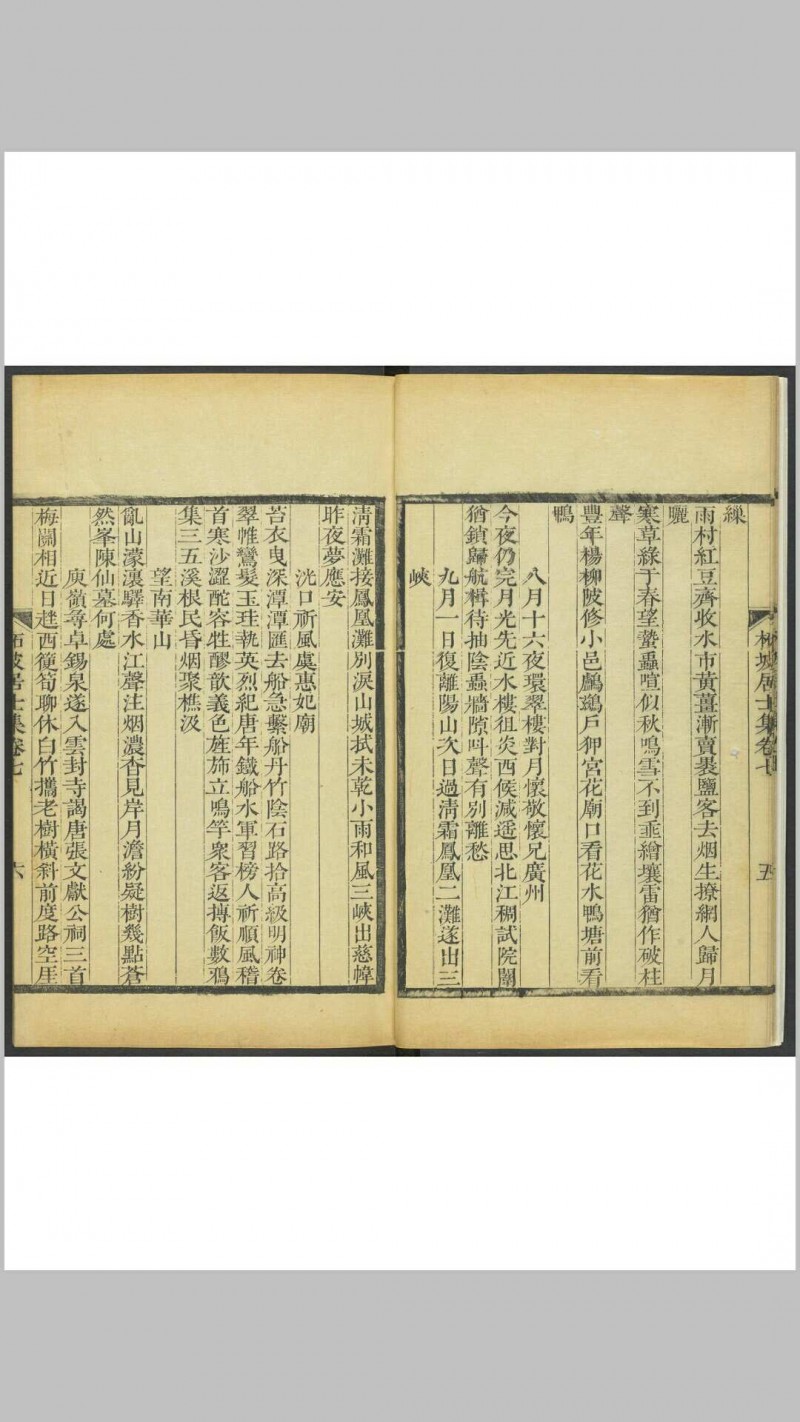 居士集卷七
五
繰
雨村紅豆齊收水市黃薑漸賣裹鹽客去烟生撩網人歸月
曬
寒草綠于春望蟄蟲喧似秋鳴雪不到垂繒壤雷猶作破柱
聲
豐年楊柳陂修小邑鸕鷀戶狎宮花廟口看花水鴨塘前看
鴨
八月十六夜環翠樓對月懷敬懷兄廣州
今夜仍完月光先近水樓徂炎西候減遥思北江稠試院闈
猶鎖歸航楫待抽陰蟲墻隙呌聲有別離愁
九月一日復離陽山次日過清霜鳳凰二灘遂出三
峽
清霜灘接鳳凰灘別淚山城拭未乾小雨和風三峽出慈幃
昨夜夢應安
洸口祈風虞惠妃廟
苔衣曳深潭潭匯去船急繫船丹竹陰石路拾高級明神卷
翠帷鸞髮玉珪執英烈紀唐年鐵船水軍習榜人祈順風稽
首寒沙澀酡容牲醪歆義色旌斾立鳴竽衆客返摶飯數鴉
集三五溪根民昏烟聚樵汲
望南華山
亂山濛瀼驛香水江聲注烟濃杳見岸月澹紛疑樹幾點蒼
然峯陳仙墓何處
庾嶺尋卓錫泉遂入雲封寺謁唐張文獻公祠三首
梅關相近日趖西篴筍聊休白竹攜老樹橫斜前度路空厓
居士集卷七
六